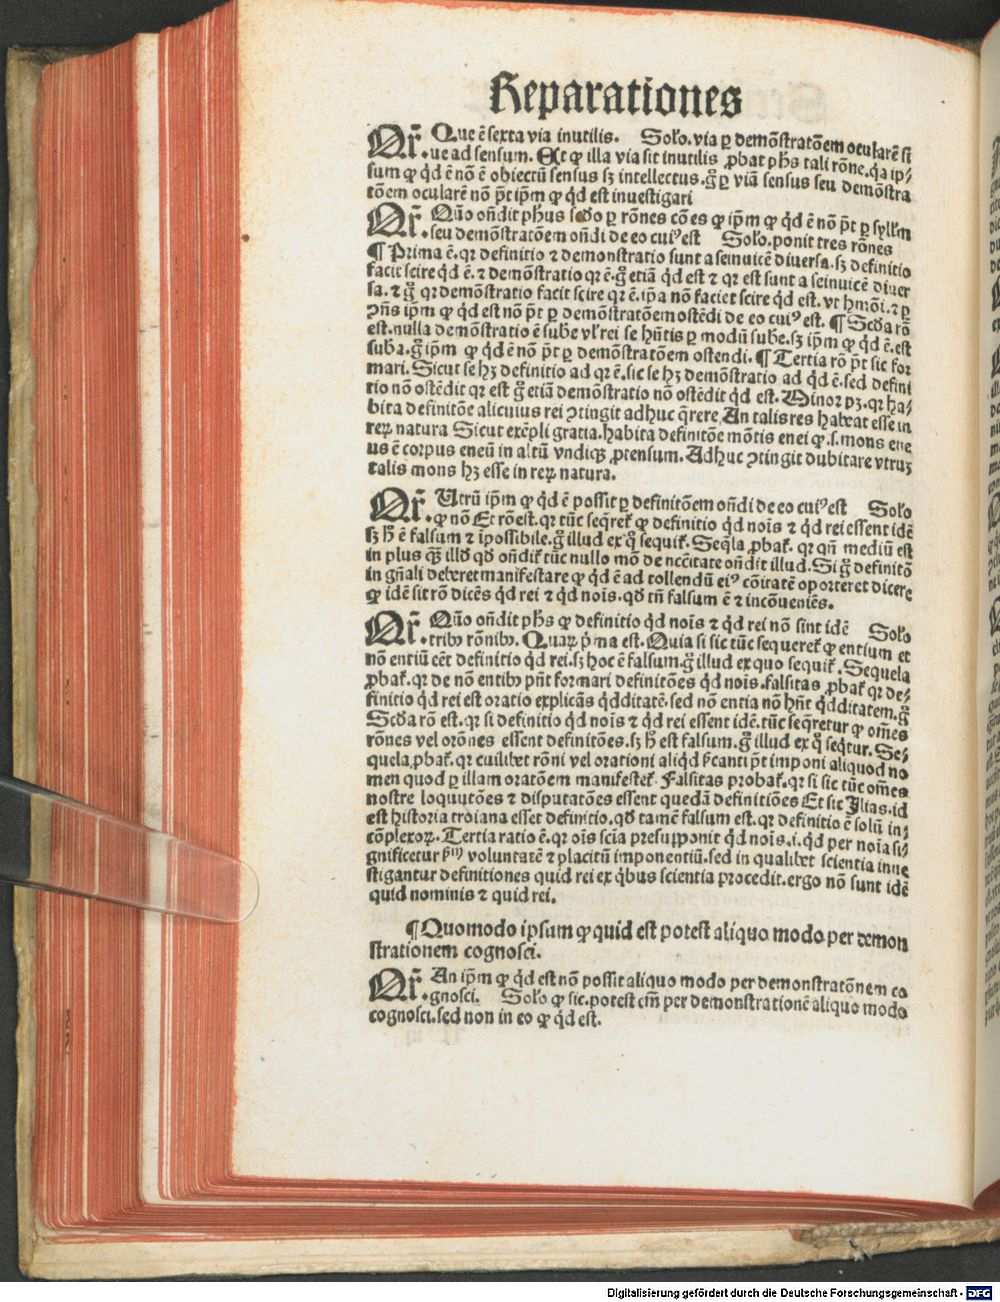 Reparationes
Qr̄. Que ē sexta via inutilis. Solo. via ꝑ demōstratōem ocularē si
ue ad sensum. Et ꝙ illa via sit inutilis ꝓbat pħs tali rōne. qꝛ ip⸗
sum ꝙ qd̓ ē nō ē obiectū sensus sꝫ intellectus. gͦ ꝑ viā sensus seu demōstra
tōem ocularē nō pōt ip̄m ꝙ qd̓ est inuestigari
Qr̄. Qūo on̄dit pħus scd̓o ꝑ rōnes cōes ꝙ ip̄m ꝙ qd̓ ē nō pōt ꝑ syll̓m
seu demōstratōem on̄di de eo cuiꝰ est Solo. ponit tres rōnes
¶ Prima ē. qꝛ definitio ⁊ demonstratio sunt a seinuicē diuersa. sꝫ definitio
facit scire qd̓ ē. ⁊ demōstratio qꝛ ē. gͦ etiā qd̓ est ⁊ qꝛ est sunt a seinuicē diuer
sa. ⁊ gͦ qꝛ demōstratio facit scire qꝛ ē. ip̄a nō faciet scire qd̓ est. vt hm̄oi. ⁊ ꝑ
ꝯn̄s ip̄m ꝙ qd̓ est nō pōt ꝑ demōstratōem ostēdi de eo cuiꝰ est. ¶ Scd̓a rō
est. nulla demōstratio ē sube vl̓ rei se hn̄tis ꝑ modū sube. sꝫ ip̄m ꝙ qd̓ ē. est
suba. gͦ ip̄m ꝙ qd̓ ē nō pōt ꝑ demōstratōem ostendi. ¶ Tertia rō pōt sic for
mari. Sicut se hꝫ definitio ad qꝛ ē. sic se hꝫ demōstratio ad qd̓ ē. sed defini
tio nō ostēdit qꝛ est gͦ etiā demōstratio nō ostēdit qd̓ est. Minor pꝫ. qꝛ ha⸗
bita definitōe alicuius rei ꝯtingit adhuc q̄rere An talis res habeat esse in
reꝝ natura Sicut exēpli gratia. habita definitōe mōtis enei ꝙ. s. mons ene
us ē corpus eneū in altū vndiqꝫ ꝓtensum. Adhuc ꝯtingit dubitare vtruꝫ
talis mons hꝫ esse in reꝝ natura.
Qr̄. Utrū ip̄m ꝙ qd̓ ē possit ꝑ definitōem on̄di de eo cuiꝰ est Solo
ꝙ nō Et rō est. qꝛ tūc seq̄ret᷑ ꝙ definitio qd̓ nois̄ ⁊ qd̓ rei essent idē
sꝫ h̄ ē falsum ⁊ īpossibile. gͦ illud ex qͦ sequit᷑. Seq̄la ꝓbat᷑. qꝛ qn̄ mediū est
in plus qꝫ̄ illd̓ qd̓ on̄dit᷑ tūc nullo mō de nc̄citate on̄dit illud. Si gͦ definitō
in gn̄ali deberet manifestare ꝙ qd̓ ē ad tollendū eiꝰ cōitatē oporteret dicere
ꝙ idē sit rō dicēs qd̓ rei ⁊ qd̓ nois̄. qd̓ tn̄ falsum ē ⁊ incōueniēs.
Qr̄. Qūo on̄dit pħs ꝙ definitio qd̓ nois̄ ⁊ qd̓ rei nō sint idē Solo
tribꝰ rōnibꝰ. Quaꝝ pͥma est. Quia si sic tūc sequeret᷑ ꝙ entium et
nō entiū eēt definitio qd̓ rei. sꝫ hoc ē falsum. gͦ illud ex quo sequit᷑. Sequela
ꝓbat᷑. qꝛ de nō entibꝰ pn̄t formari definitōes qd̓ nois̄. falsitas ꝓbat᷑ qꝛ de⸗
finitio qd̓ rei est oratio explicās qd̓ditatē. sed nō entia nō hn̄t qd̓ditatem. gͦ
Scd̓a rō est. qꝛ si definitio qd̓ nois̄ ⁊ qd̓ rei essent idē. tūc seq̄retur ꝙ oēs
rōnes vel orōnes essent definitōes. sꝫ h̄ est falsum. gͦ illud ex qͦ seq̄tur. Se⸗
quela ꝓbat᷑. qꝛ cuilibet rōni vel orationi aliqd̓ pōt imponi aliquod no
men quod ꝑ illam oratōem manifestet᷑. Falsitas probat᷑. qꝛ si sic tūc om̄es
nostre loqutōes ⁊ disputatōes essent quedā definitiōes Et sic Ilias. id
est historia troiana esset definitio. qd̓ tamē falsum est. qꝛ definitio ē solū in⸗
cōplexoꝝ. Tertia ratio ē. qꝛ ois̄ scīa presupponit qd̓ nois̄. i. qd̓ per noīa si⸗
gnificetur voluntatē ⁊ placitū imponentiū. sed in qualibet scientia inue
stigantur definitiones quid rei ex qͥbus scientia procedit. ergo nō sunt idē
quid nominis ⁊ quid rei.
¶ Quomodo ipsum ꝙ quid est potest aliquo modo per demon
strationem cognosci.
Qr̄. An ip̄m ꝙ qd̓ est nō possit aliquo modo per demonstratōnem co
gnosci. Solo ꝙ sic. potest cm̄ per demonstrationē aliquo modo
cognosci. sed non in eo ꝙ qd̓ est.
Digitalisierung gefördert durch die Deutsche Forschungsgemeinschaft - DFG